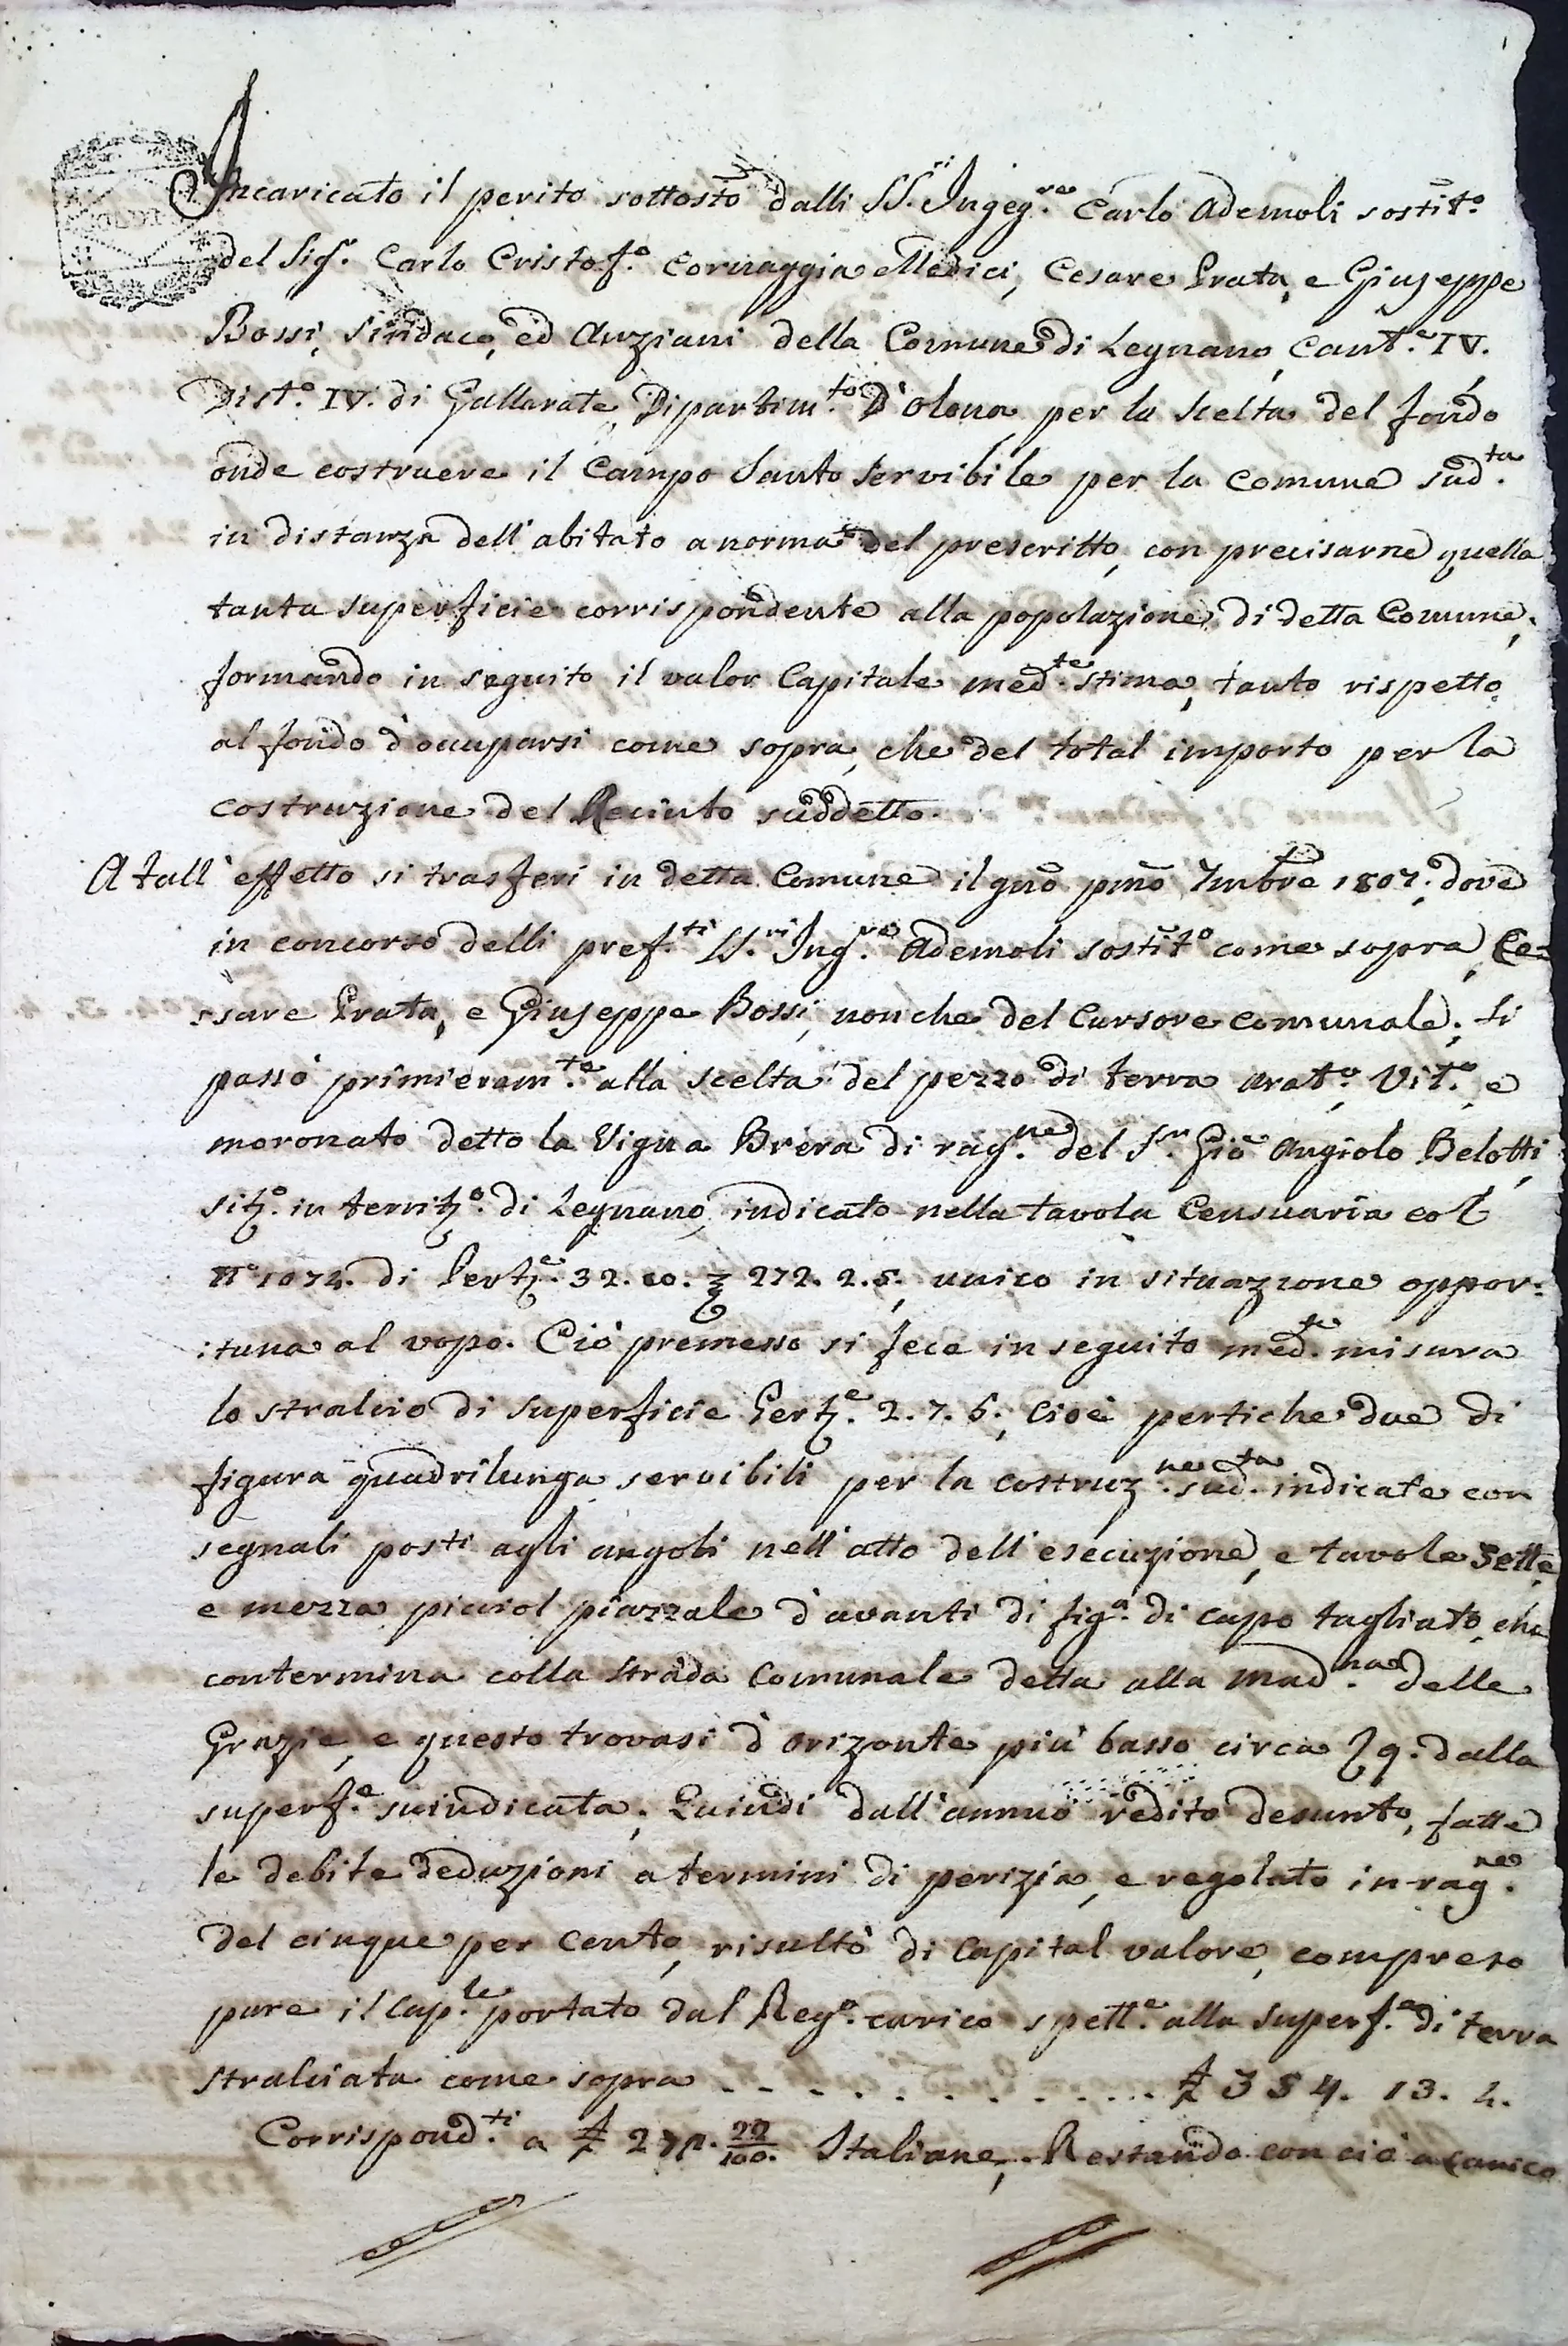 Incaricato il perito sottosto dalli SS.ri Ingeg.re Carlo Ademoli sostit.o
del Sig.r Carlo Cristof.o Cornaggia Medici, Cesare Prata, e Giuseppe
Bossi, Sindaco, ed Anziani della Comune di Legnano, Cant.e IV.
Dist.o IV. di Gallarate, Dipartim.to D'Olona, per la scelta del fondo
onde costruere il Campo Santo servibile per la Comune sud.ta
in distanza dell'abitato a norma del prescritto, con precisarne quella
tanta superficie corrispondente alla popolazione di detta Comune,
formando in seguito il valor Capitale med.te stima, tanto rispetto
al fondo d'occuparsi come sopra, che del total importo per la
costruzione del Recinto suddetto.
A tall'effetto si trasferì in detta Comune il gno pmo 7mbre 1807. dove
in concorso delli pref.ti SS.ri Ing.re Ademoli sostit.o come sopra, Ce=
ssare Prata, e Giuseppe Bossi, non che del Cursore comunale, si
passò primieram.te alla scelta del pezzo di terra arat.o, Vit.o, e
moronato detto la Vigna Brera di rag.ne del S.r Gio Angiolo Belotti
sit.o in territ.o di Legnano, indicato nella tavola Censuaria col
N.o 1072. di Pert.e 32. 20. 272. 2. 5., unico in situazione oppor:
:tuna al vopo. Ciò premesso si fece in seguito med.te misura
lo stralcio di superficie Pert.e 2. 7. 6., cioè pertiche due di
figura quadrilunga servibili per la costruz.ne sud.ta indicate con
segnali posti agli angoli nell'atto dell'esecuzione, e tavole sette
e mezza picciol piazzale d'avanti di fig.a di capo tagliato, che
contermina colla strada Comunale detta alla Mad.na delle
Grazie, e questo trovasi d'orizonte più basso circa 9. dalla
superf.e suindicata. Quindi dall'annuo redito desunto, fatte
le debite deduzioni a termini di perizia, e regolato in rag.ne
del cinque per cento, risultò di Capital valore, compreso
pure il Cap.le portato dal Reg.o carico spett.e alla superf.e di terra
stralciata come sopra . . . . . . . . . . . . £ 354. 13. 4.
Corrispond.ti a £ 272. 22/100. Italiane, Restando con ciò a carico